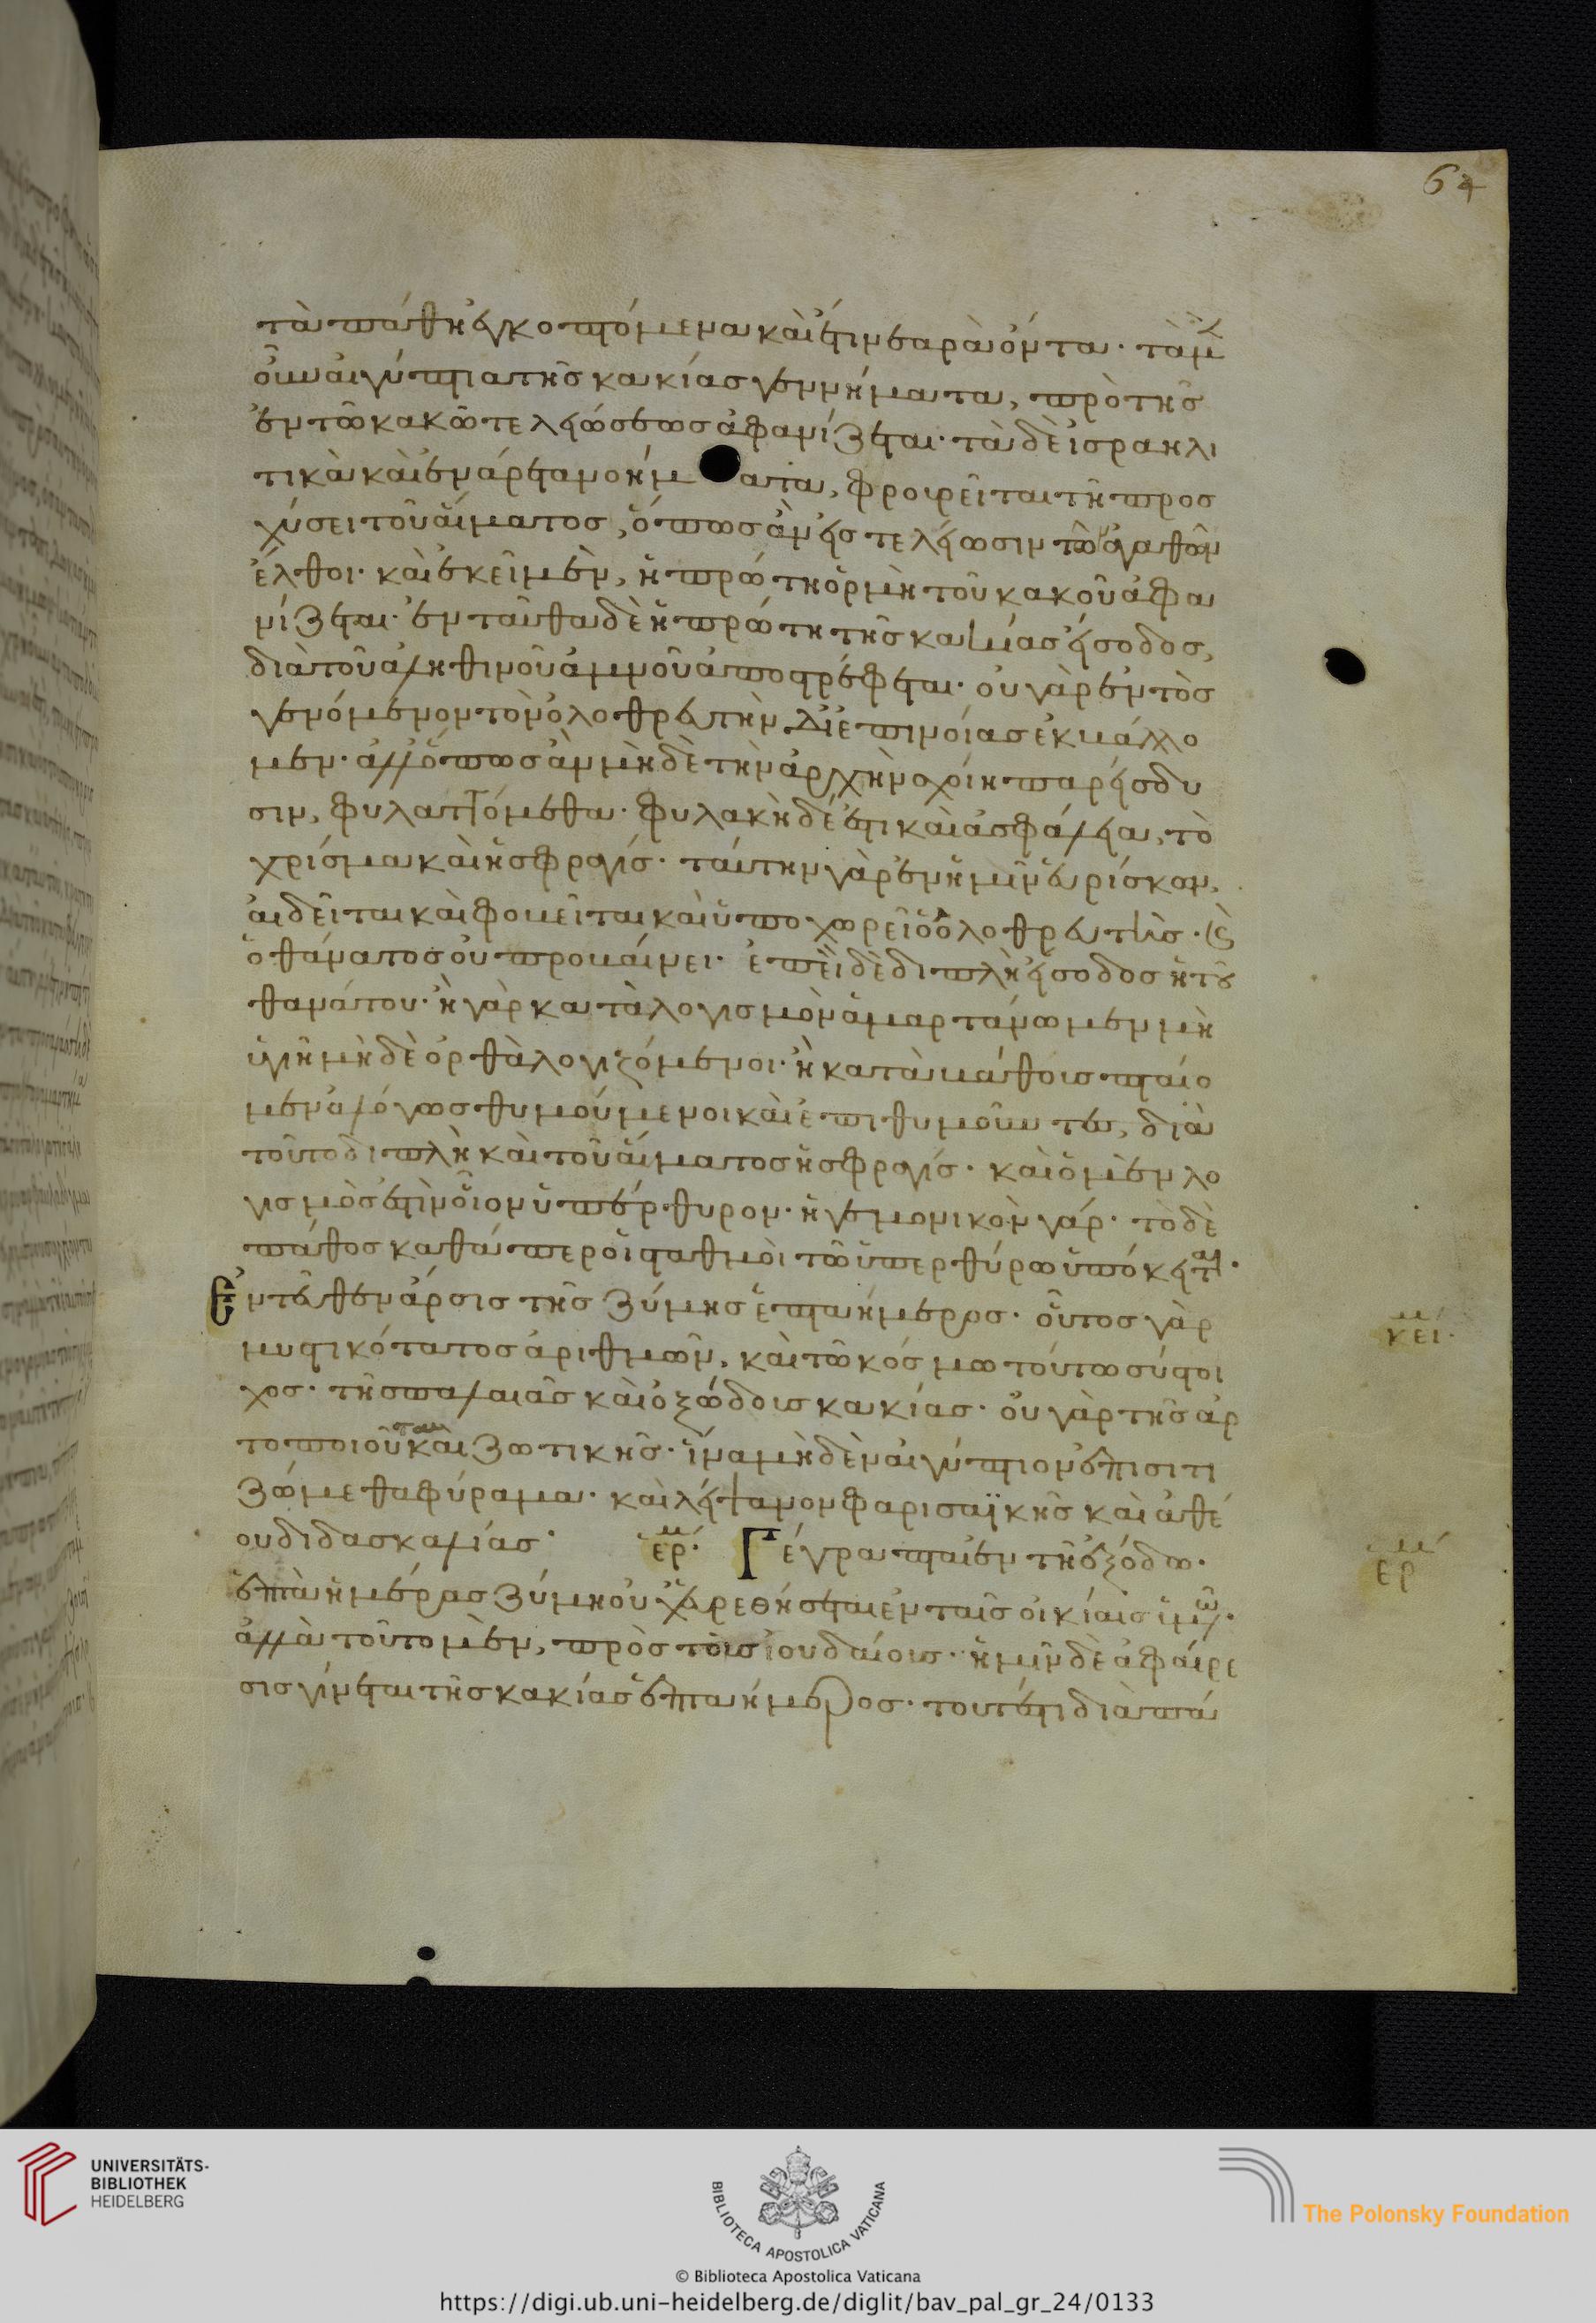 64
τὰ πάθη ἐγκοπτόμενα καὶ στινβαρὰ ὄντα· τὰ μὲν
οὖν αἰγύπτια τῆς κακίας γεννήματα, πρὸ τῆς
ἐν τῶ κακῶ τελειώσεως ἀφανίζεται· τὰ δὲ ἰσραηλι
τικὰ καὶ ἐνάρετα νοήματα, φρουρεῖται τῆ προσ
χύσει τοῦ αἵματος, ὅπως ἂν εἰς τελείωσιν τῶν ἀγαθῶν
ἔλθοι· καὶ ἐκεῖ μὲν, ἡ πρώτη ὁρμὴ τοῦ κακοῦ ἀφα
νίζεται· ἐνταῦθα δὲ ἡ πρώτη τῆς κακίας εἴσοδος,
διὰ τοῦ ἀληθινοῦ ἀμνοῦ ἀποστρέφεται· οὐ γὰρ ἐντὸς
γενόμενον τὸν ὀλοθρευτὴν δι' ἐπινοίας ἐκβάλλο
μεν· ἀλλ' ὅπως ἂν μὴ δὲ τὴν ἀρχὴν σχοίη παρείσδυ
σιν, φυλαττόμεθα· φυλακὴ δέ ἐστι καὶ ἀσφάλεια, τὸ
χρίσμα καὶ ἡ σφραγίς· ταύτην γὰρ ἐν ἡμῖν εὑρίσκων,
αἰδεῖται καὶ φοβεῖται καὶ ὑποχωρεῖ ὁ ὀλοθρευτὴς· καὶ
ὁ θάνατος οὐ προβαίνει· ἐπεὶ δὲ διπλὴ εἴσοδος ἡ τοῦ
θανάτου· ἢ γὰρ κατὰ λογισμὸν ἁμαρτάνωμεν μὴ
ὑγιῆ μὴ δὲ ὀρθὰ λογιζόμενοι· ἢ κατὰ πάθους πταίο
μεν ἀλόγως θυμούμενοι καὶ ἐπιθυμοῦντες, διὰ
τοῦτο διπλὴ καὶ τοῦ αἵματος ἡ σφραγίς· καὶ ὁ μὲν λο
γισμὸς ἐστὶν οἷον ὑπέρθυρον· ἡγεμονικὸν γάρ· τὸ δὲ
πάθος καθάπερ οἱ σταθμοὶ τῶ ὑπερθύρω ὑπόκειται·
Ἐντεῦθεν ἄρσις τῆς ζύμης ἑπταήμερος· οὗτος γὰρ
μυστικότατος ἀριθμῶν, καὶ τῶ κόσμω τούτω σύστοι
χος· τῆς παλαιᾶς καὶ ὀξώδους κακίας· οὐ γὰρ τῆς ἀρ
τοποιοῦσαν καὶ ζωτικῆς· ἵνα μὴ δὲν αἰγύπτιον ἐπισιτι
ζώμεθα φύραμα· καὶ λείψανον φαρισαϊκῆς καὶ ἀθέ
ου διδασκαλίας· ερμ· Γέγραπται ἐν τῆ ἐξόδω·
ἑπτὰ ἡμέρας ζύμη οὐχ εὑρεθήσεται ἐν ταῖς οἰκίαις ὑμῶν·
ἀλλὰ τοῦτο μὲν, πρὸς τοὺς ἰουδαίους· ἡμῖν δὲ ἀφαίρε
σις γίνεται τῆς κακίας ἑπταήμερος· τουτέστι διὰ πά
κει·
ερμ
UNIVERSITÄTS-
BIBLIOTHEK
HEIDELBERG
BIBLIOTECA APOSTOLICA VATICANA
The Polonsky Foundation
© Biblioteca Apostolica Vaticana
https://digi.ub.uni-heidelberg.de/diglit/bav_pal_gr_24/0133